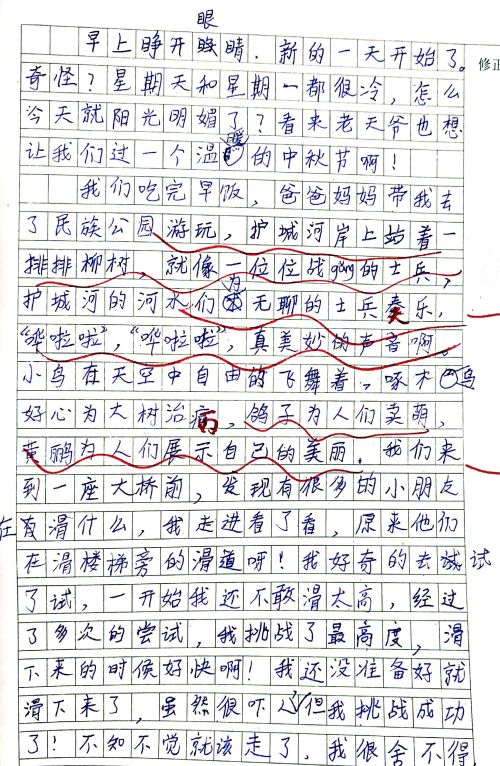 眼
早上睁开睃睛，新的一天开始了。
修正
奇怪？星期天和星期一都很冷，怎么
今天就阳光明媚了？看来老天爷也想
让我们过一个温暖的中秋节啊！
我们吃完早饭，爸爸妈妈带我去
了民族公园游玩，护城河岸上站着一
排排柳树，就像一位位战gǎng的士兵，
为
护城河的河水们无聊的士兵奏乐，
“哗啦啦”，“哗啦啦”，真美妙的声音啊。
小鸟在天空中自由的飞舞着，啄木鸟
好心为大树治病，鸽子为人们卖萌，
黄鹂为人们展示自己的美丽．我们来
到一座大桥前，发现有很多的小朋友
在有滑什么，我走进看了看，原来他们
在滑楼梯旁的滑道呀！我好奇的去试试
了试，一开始我还不敢滑太高，经过
了多次的尝试，我挑战了最高度，滑
下来的时候好快啊！我还没准备好就
滑下来了，虽然很吓人，但我挑战成功
了！不知不觉就该走了，我很舍不得